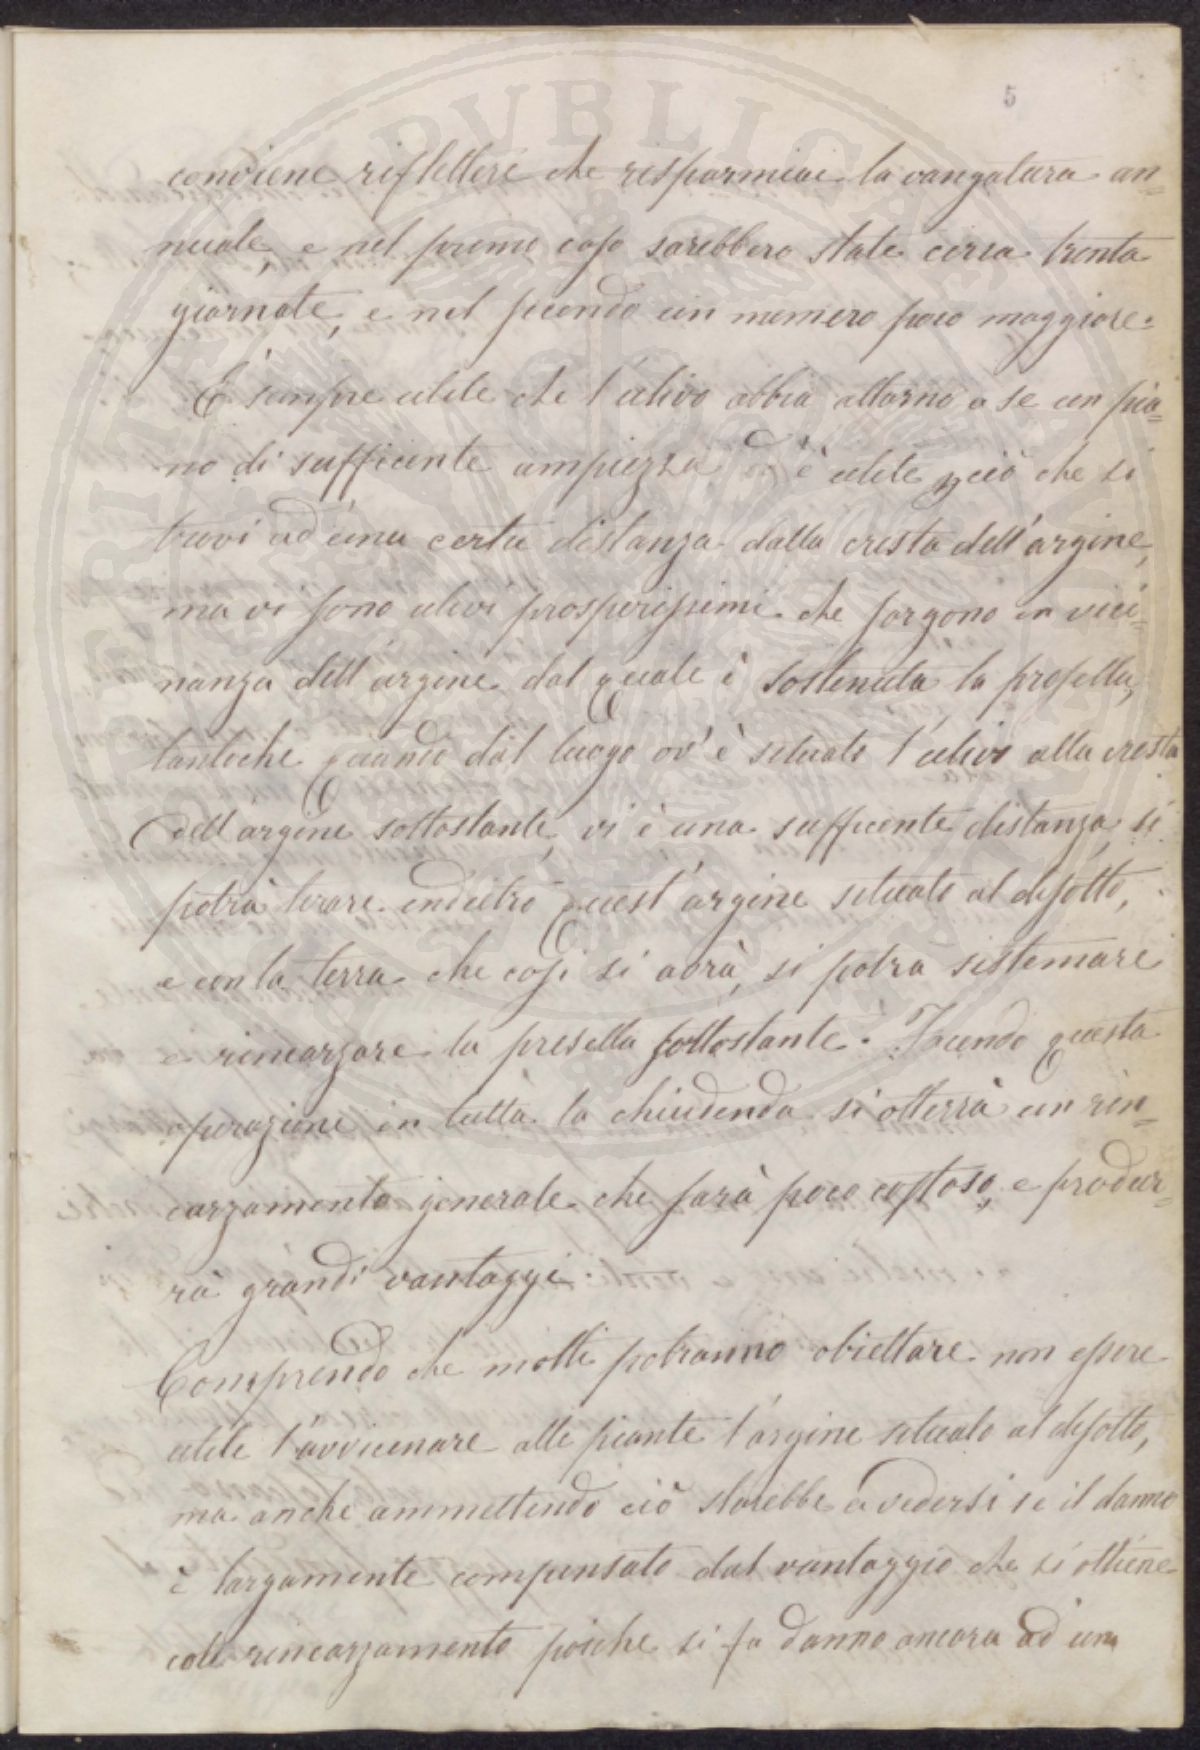 5
conviene riflettere che risparmiai la vangatura an=
nuale, e nel primo caso sarebbero state circa trenta
giornate, e nel secondo un numero poco maggiore.
È sempre utile che l'ulivo abbia attorno a se un pia=
no di sufficiente ampiezza è utile ciò che si
trovi ad una certa distanza dalla cresta dell'argine,
ma vi sono ulivi prosperissimi che sorgono in vici=
nanza dell'argine dal quale è sostenuta la proselta,
tantoche quando dal luogo ov'è situato l'ulivo alla cresta
dell'argine sottostante, vi è una sufficente distanza, si
potrà tirare indietro quest'argine situato al disotto,
e con la terra che così si avrà, si potrà sistemare
e rincarzare la preselta sottostante. Facendo questa
operazione in tutta la chiudenda si otterrà un rin=
carzamento generale che sarà poco costoso, e produr=
rà grandi vantaggi.
Comprendo che molti potranno obiettare non essere
utile l'avvicenare alle piante l'argine situato al disotto,
ma anche ammettendo ciò starebbe a vedersi se il danno
è largamente compensato dal vantaggio che si ottiene
col rincarzamento poiche si fa danno ancora ad una
PUBLICAE